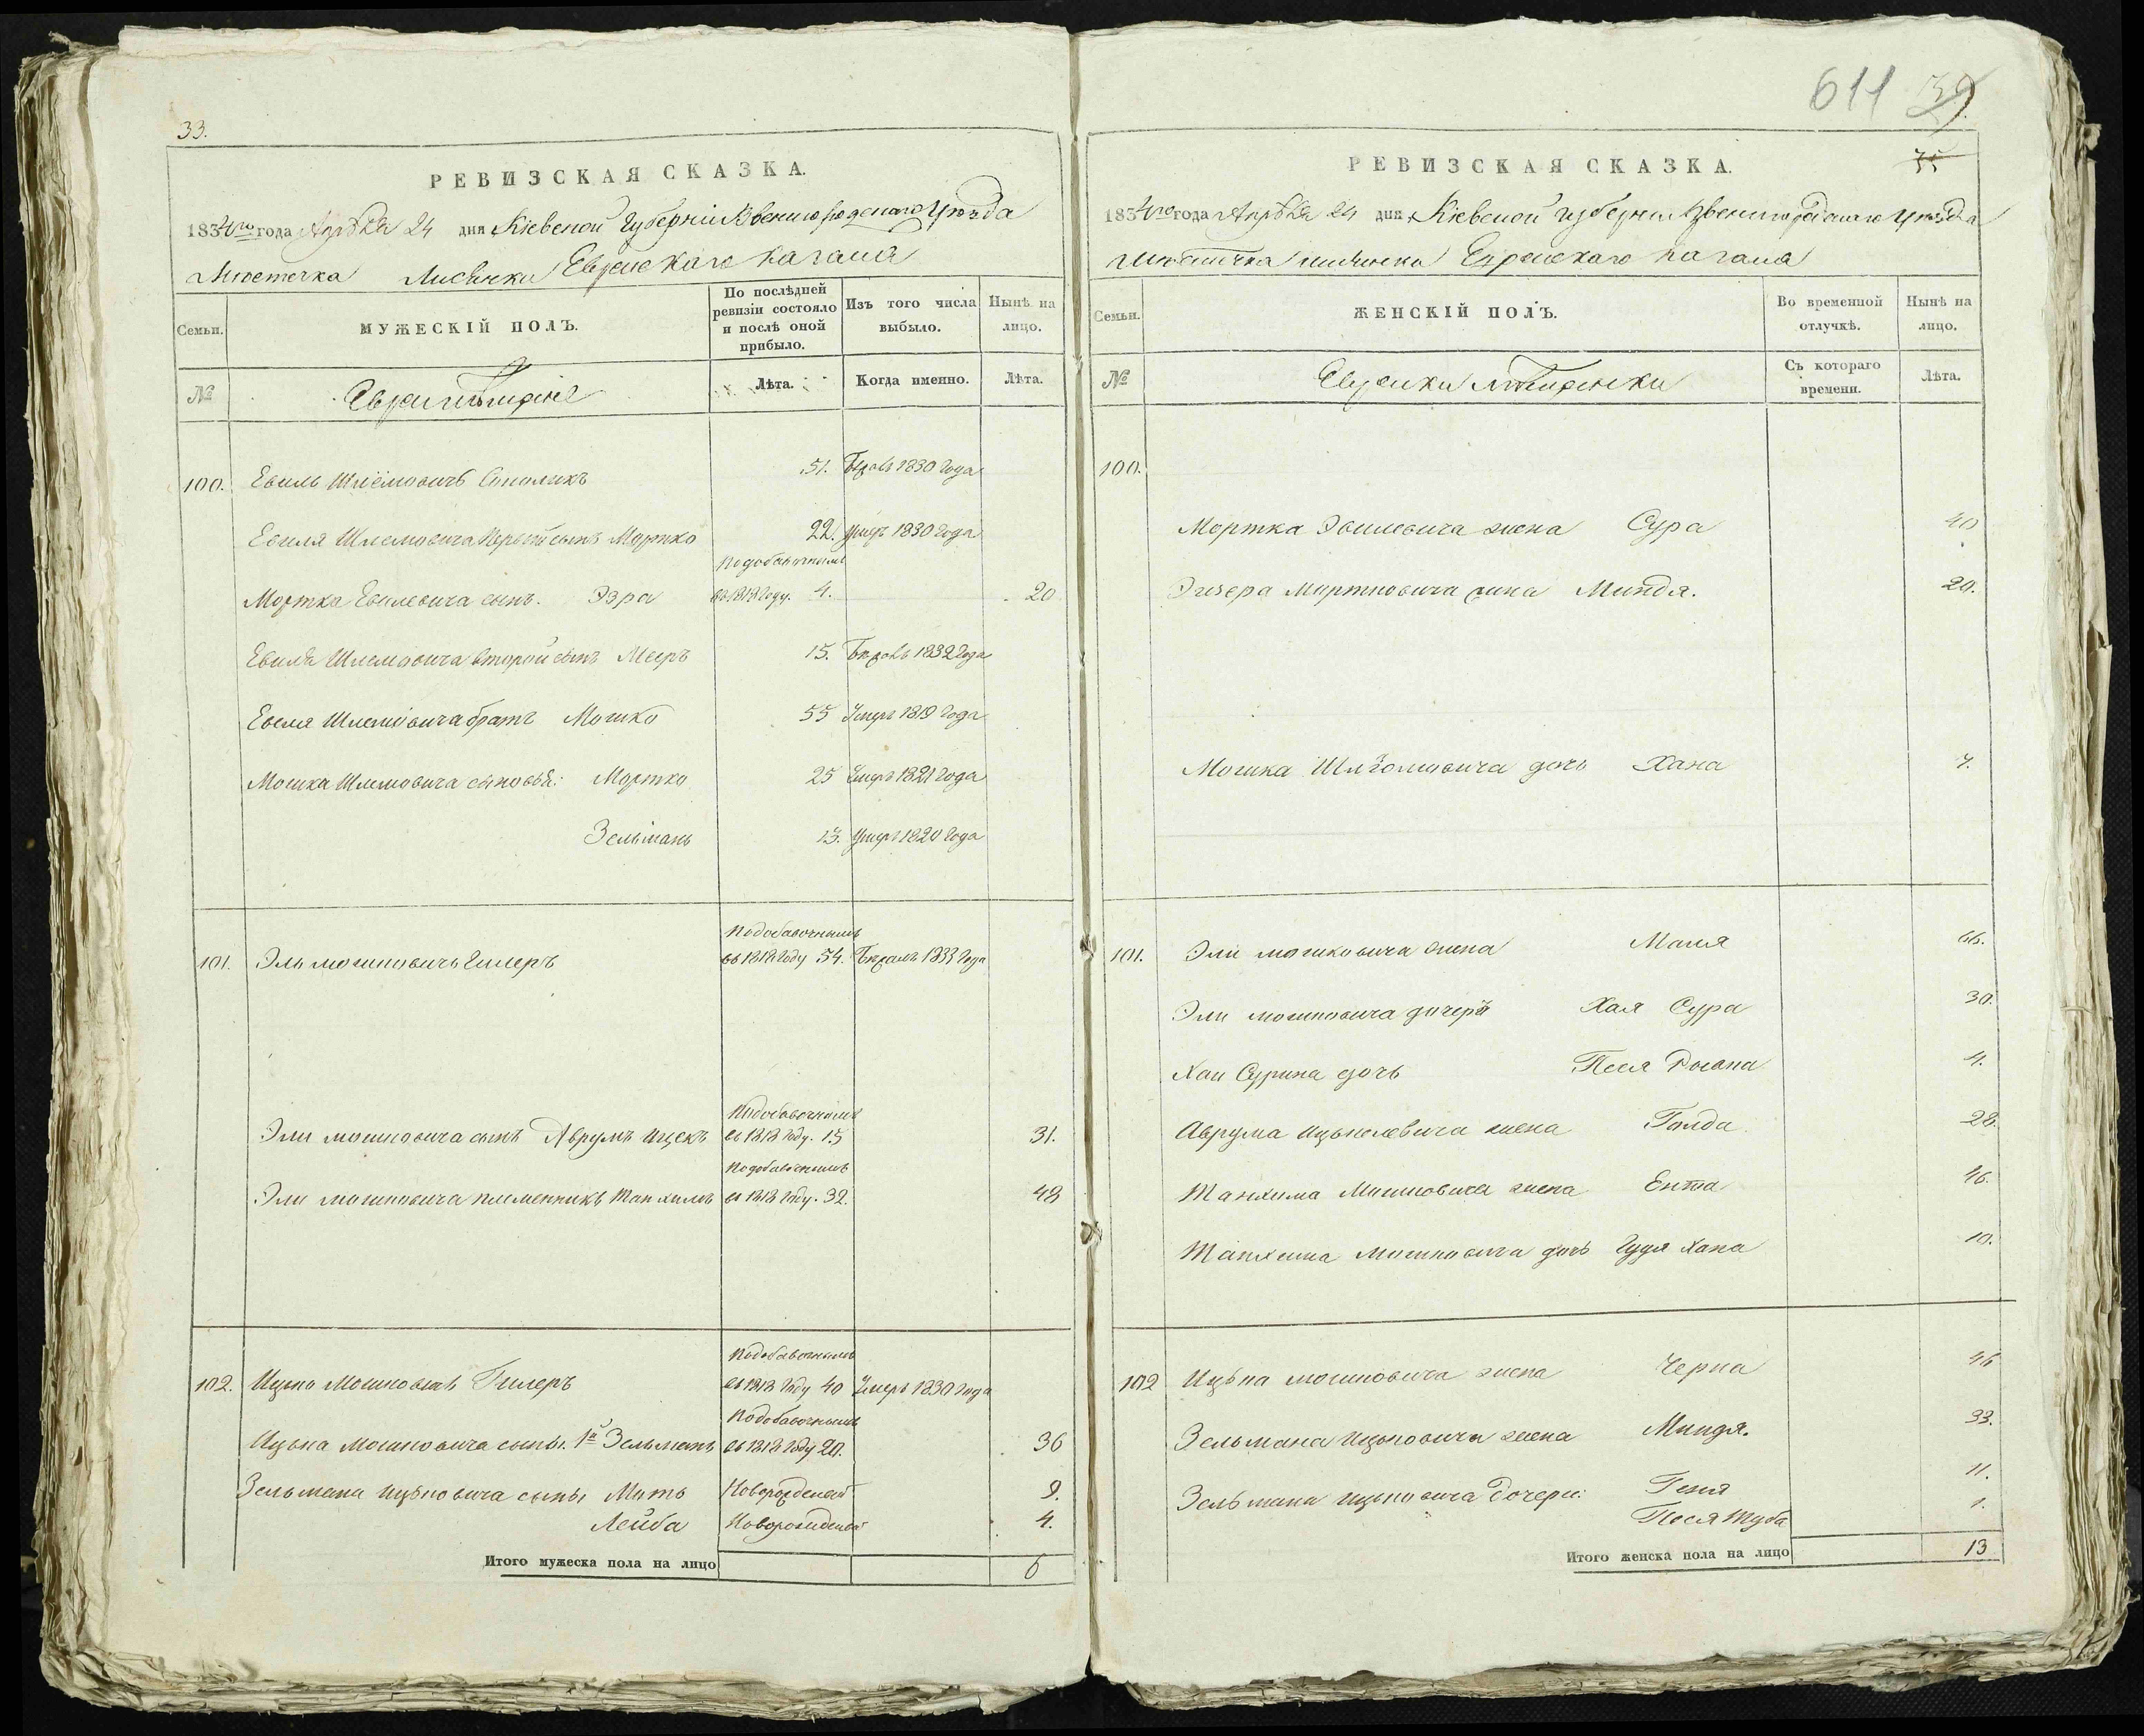 33.
РЕВИЗСКАЯ СКАЗКА.
1834го года Апрѣля 24 дня Кіевской Губерніи Звенигородскаго Уѣзда
Мѣстечка Лисянки Еврейскаго Кагала
Семьи.
МУЖЕСКІЙ ПОЛЪ.
По послѣдней ревизіи состояло и послѣ оной прибыло.
Изъ того числа выбыло.
Нынѣ на лицо.
№
Евреи мѣщане
Лѣта.
Когда именно.
Лѣта.
100. Евиль Шлёмовичъ 51. 1830 года
Евиля Шлемовича первый сынъ Мортко 22. умеръ 1830 года
Подобавочнымъ
Мортка Евилевича сынъ. Эзра въ 1818 году. 4. 20
Евиля Шлемовича второй сынъ Мееръ 15. 1832 года
Евеля Шлемовича братъ Мошко 55 Умеръ 1819 года
Мошка Шлемовича сыновья: Мортко 25 Умеръ 1821 года
Зельманъ 13. умеръ 1820 года
Подобавочнымъ
101. Эль Мошковичъ Гилеръ въ 1818 году 54. 1833 года
Подобавочнымъ
Эли Мошковича сынъ Аврумъ Ицекъ въ 1818 году. 15 31.
Подобавочнымъ
Эли Мошковича племянникъ Танхимъ въ 1818 году. 32. 48
Подобавочнымъ
102. Ицько Мошковичъ Гилеръ въ 1818 году 40 Умеръ 1830 года
Подобавочнымъ
Ицька Мошковича сыны. 1й Зельманъ въ 1818 году 20. 36
Зельмана Ицьковича сыны Новорожденный 9.
Лейба Новорожденный 4.
Итого мужеска пола на лицо 6
611 39.
75
РЕВИЗСКАЯ СКАЗКА.
1834го года Апрѣля 24 дня Кіевской Губерніи Звенигородскаго Уѣзда
Мѣстечка Лисянки Еврейскаго Кагала
Семьи.
ЖЕНСКІЙ ПОЛЪ.
Во временной отлучкѣ.
Нынѣ на лицо.
№
Еврейки мѣщанки
Съ котораго времени.
Лѣта.
100.
Мортка Эвилевича жена Сура 40
Мортковича жена Миндя. 20.
Мошка Шлёмовича дочь Хана 7.
101. Эли Мошковича жена Маля 66.
Эли Мошковича дочерь Хая Сура 30.
Хаи Сурина дочь Песя 4.
Аврума Ицькелевича жена Голда 28.
Танхима Мошковича жена Ента 46.
Танхима Мошковича дочь Гудя Хана 10.
102 Ицька Мошковича жена Черна 46
Зельмана Ицьковича жена Миндя. 33.
Зельмана Ицьковича дочери: Геня 11.
Песя Туба 1.
Итого женска пола на лицо 13